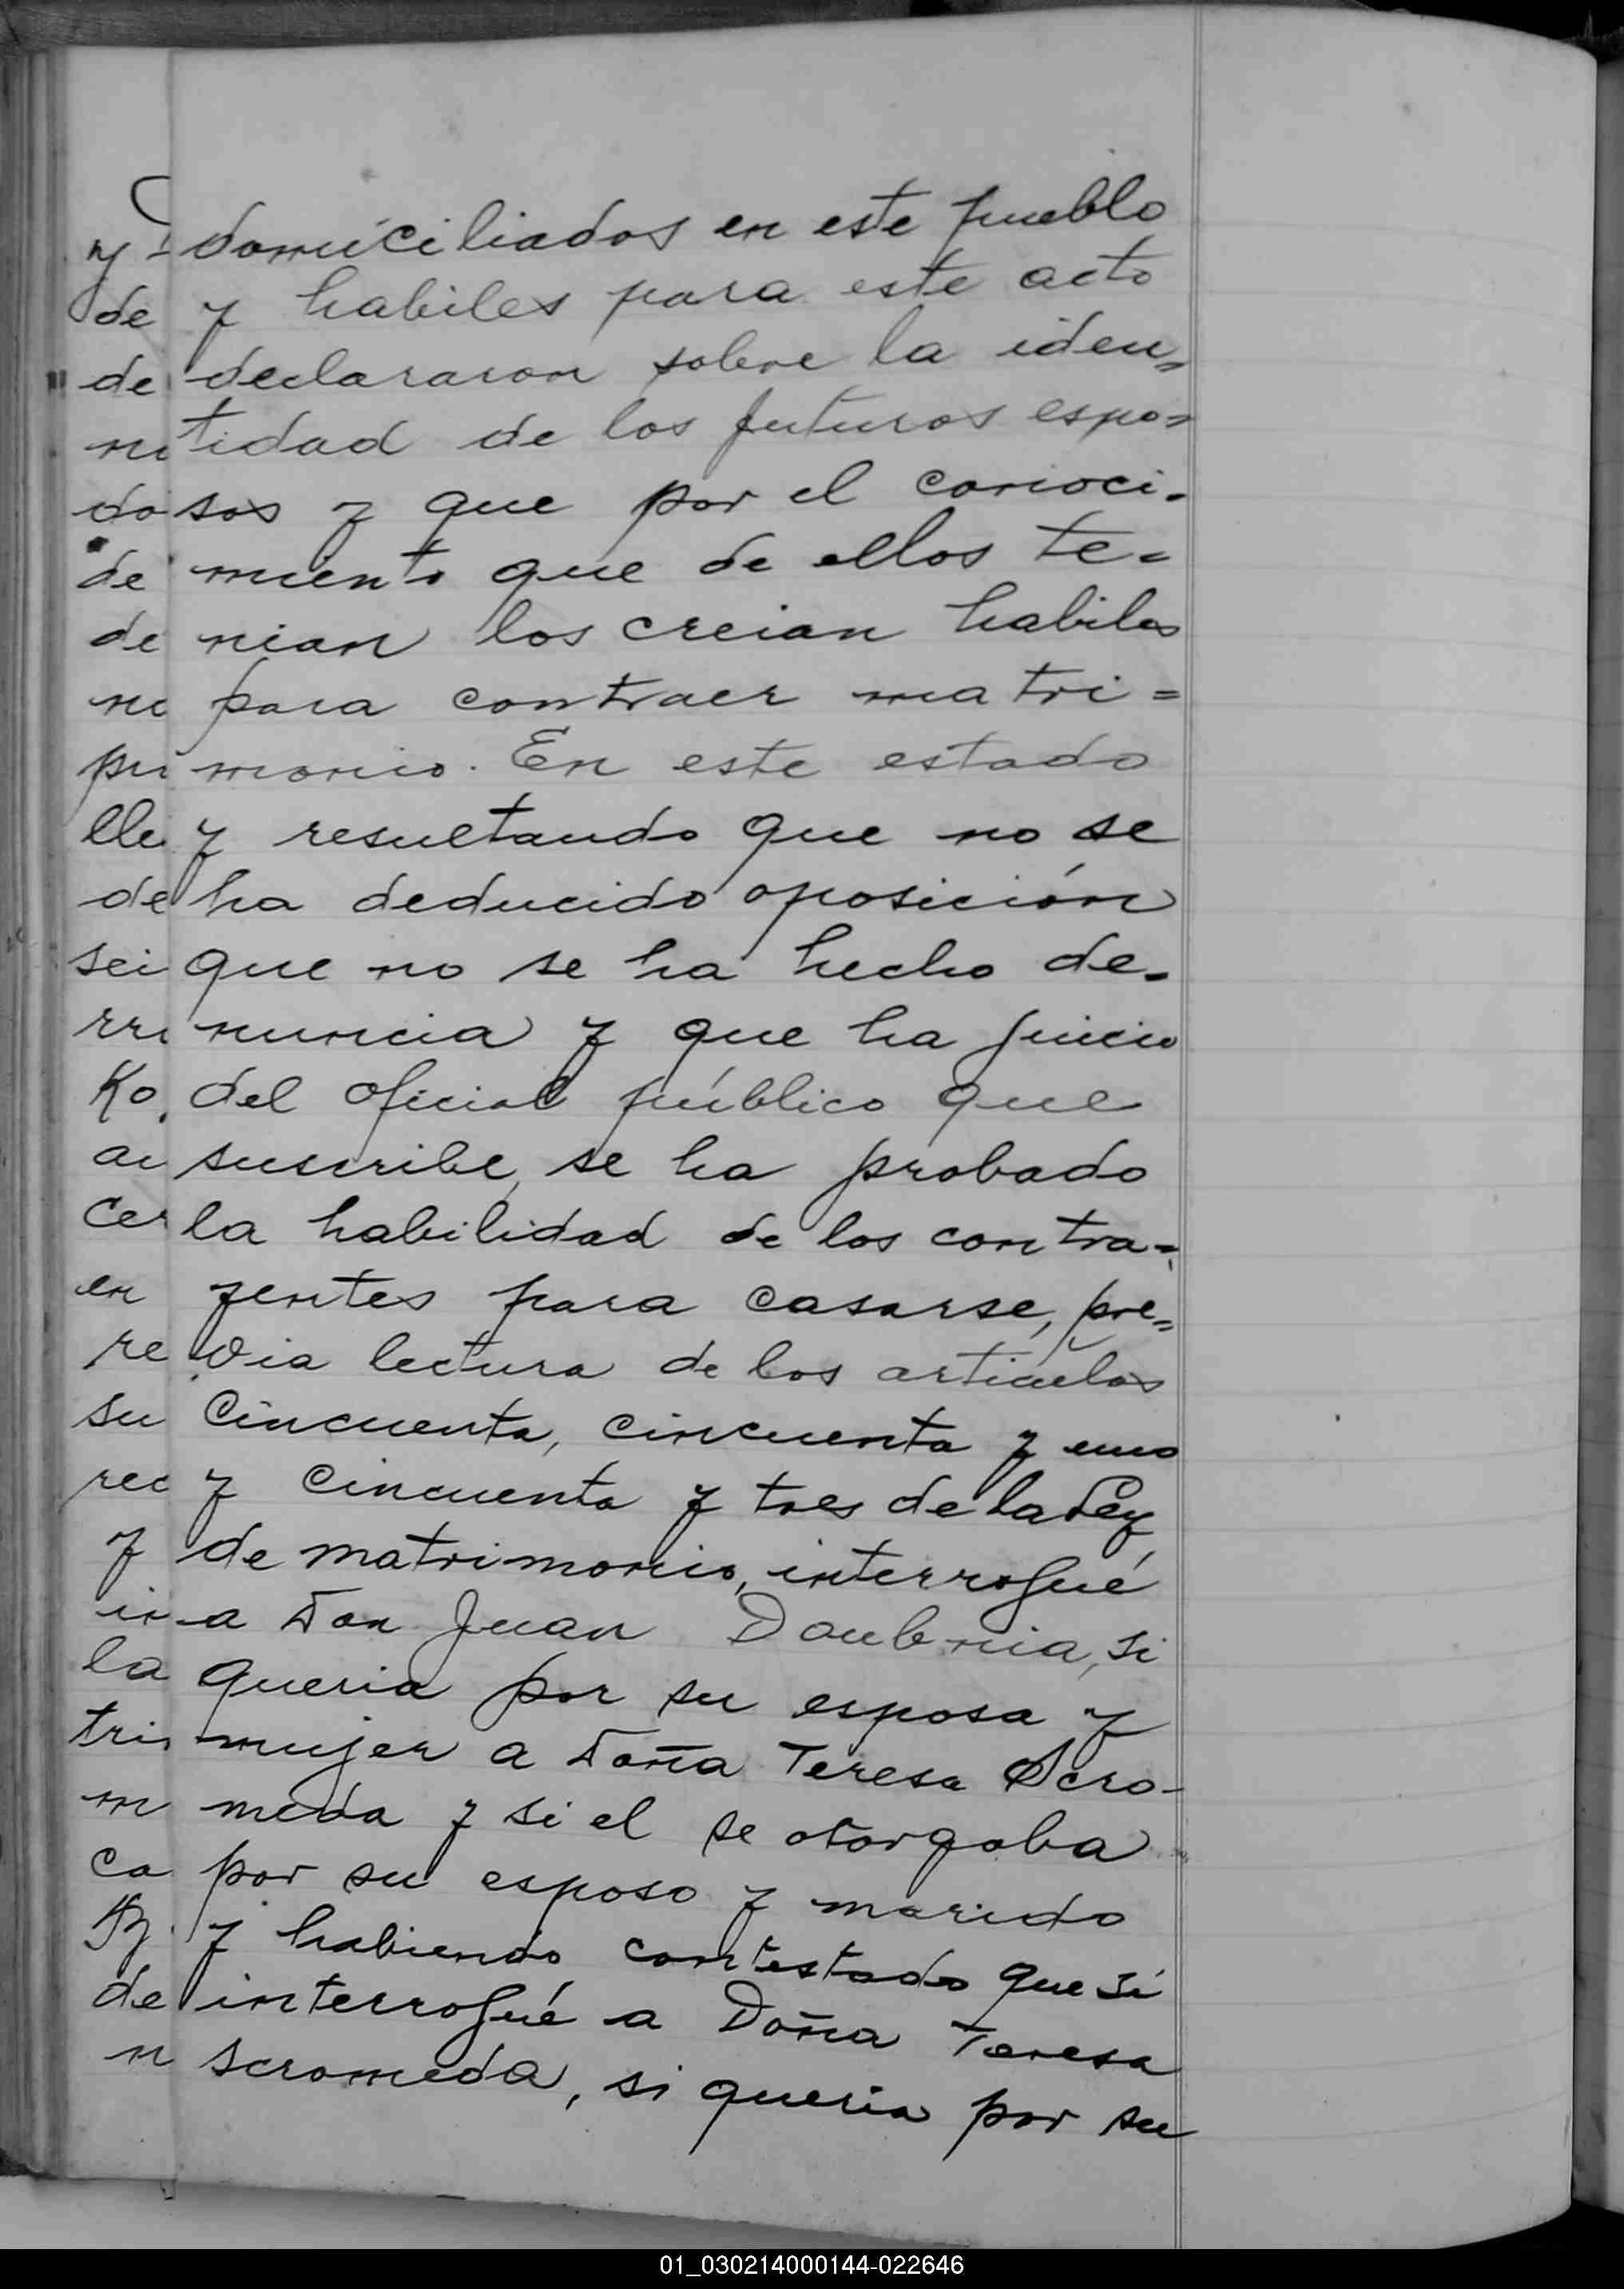 domiciliados en este pueblo
y habiles para este acto
declararon sobre la iden=
tidad de los futuros espo=
sos y que por el conoci-
miento que de ellos te=
nian los creian habiles
para contraer matri=
monio. En este estado
y resultando que no se
ha deducido oposición
que no se ha hecho de-
nuncia y que ha juicio
del oficial público que
suscribe, se ha probado
la habilidad de los contra=
yentes para casarse, pre=
via lectura de los articulos
cincuenta, cincuenta y uno
y cincuenta y tres de la Ley
de matrimonio, interrogué
a Don Juan Doubnia, si
queria por su esposa y
mujer a Doña Teresa Scro-
meda y si el se otorgaba
por su esposo y marido
y habiendo contestado que si
interrogué a Doña Teresa
Scromeda, si queria por su
01_030214000144-022646